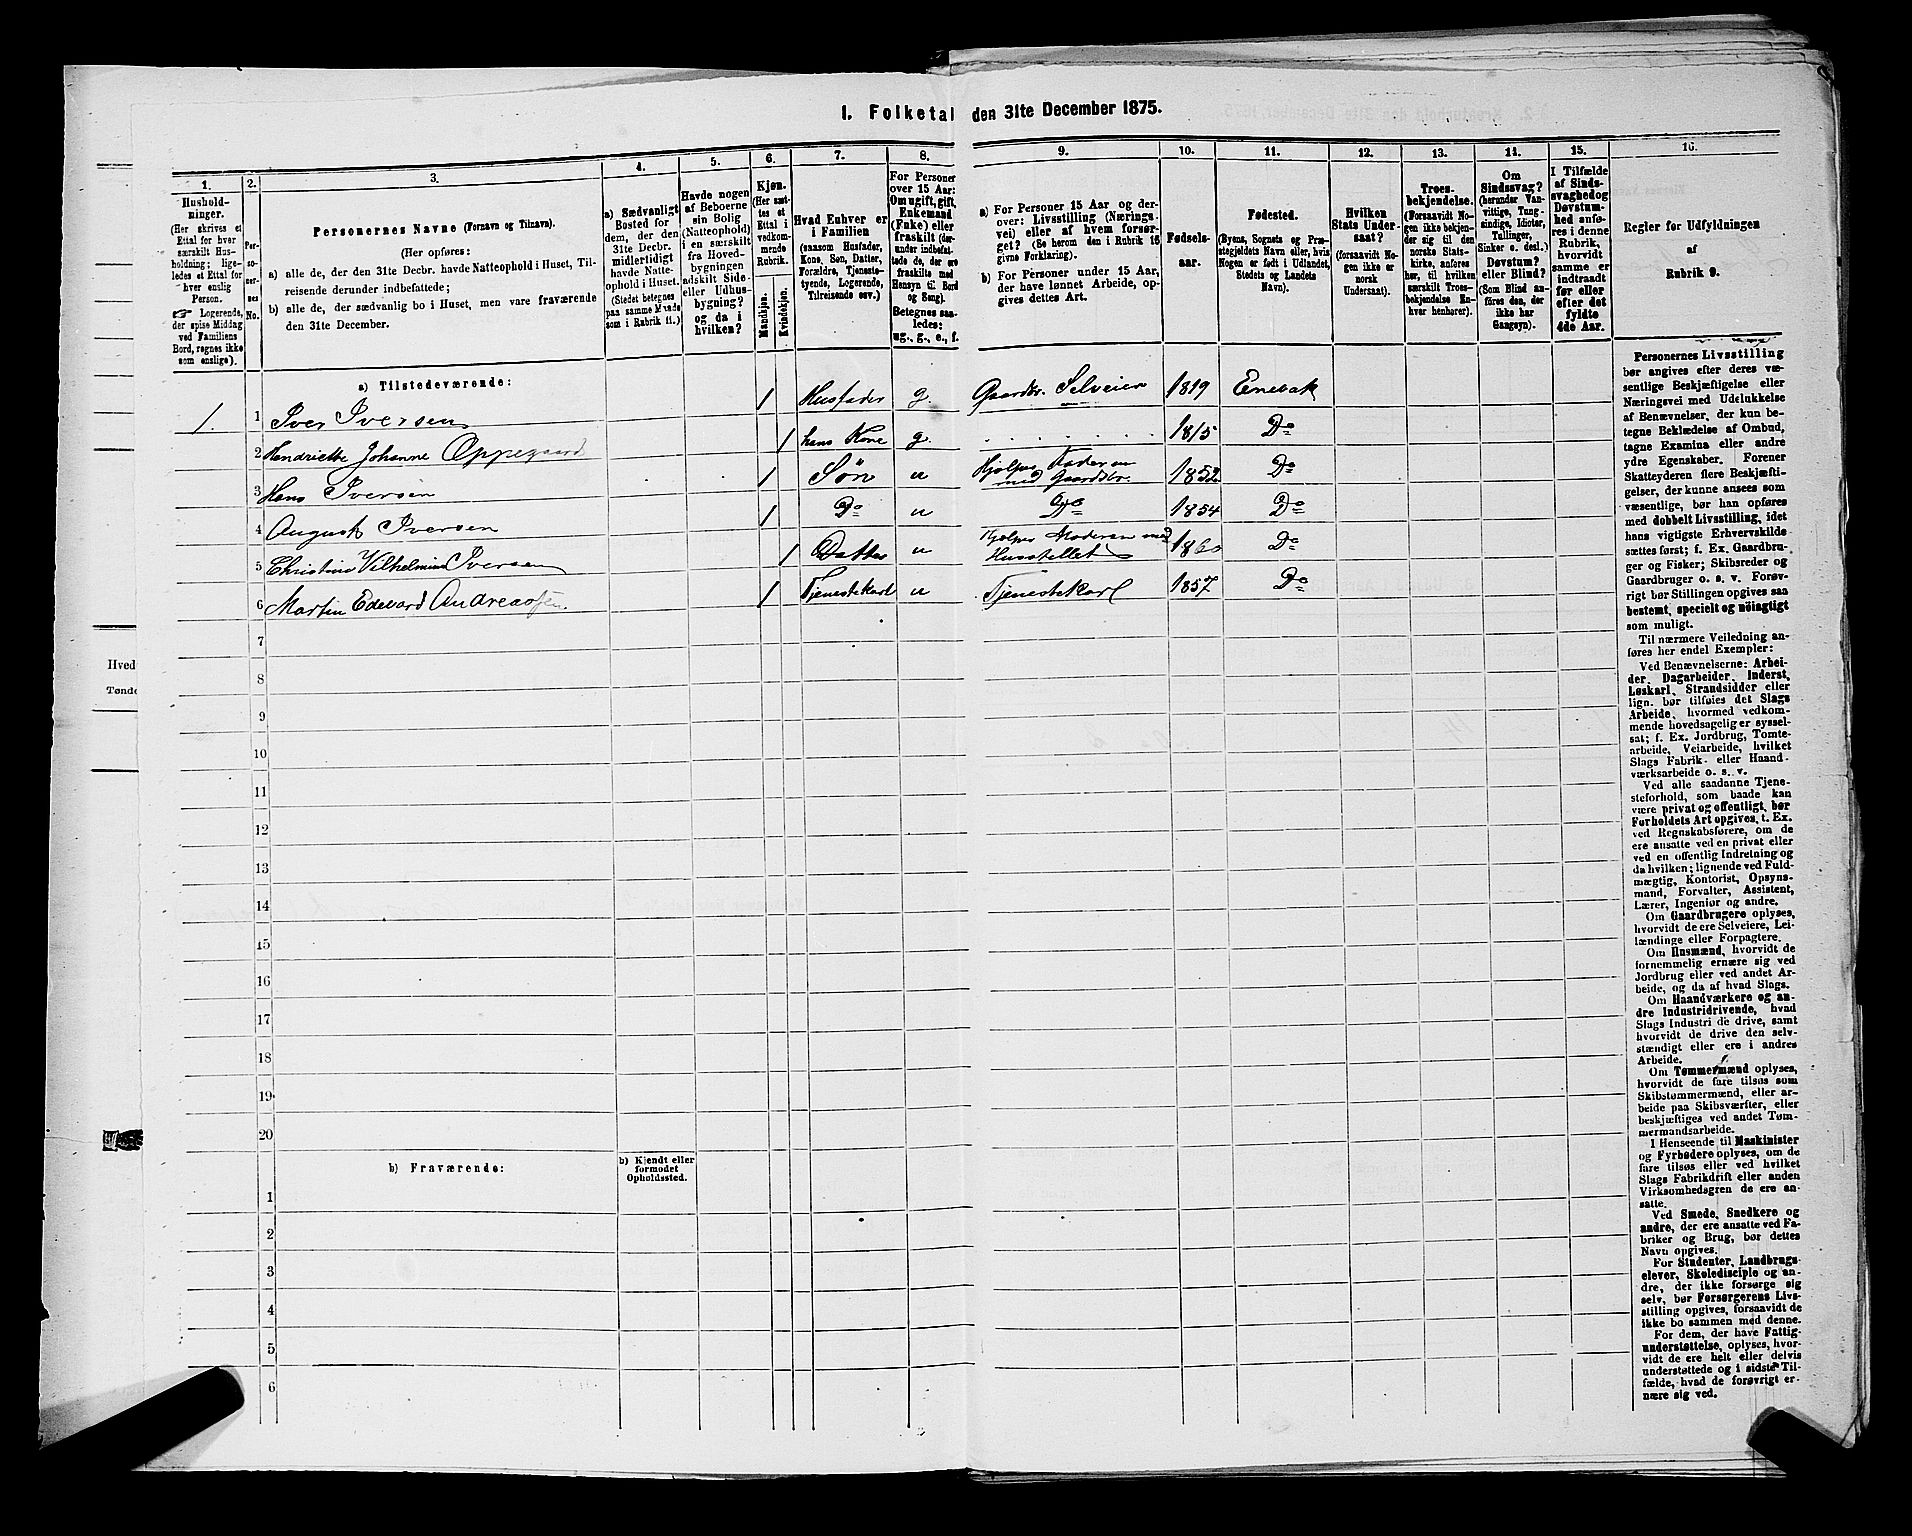 I. Folketal den 31te December 1875.
1.
Husholdninger.
(Her skrives et
Ettal for hver
særskilt Husholdning;
ligeledes et Ettal for
hver enslig
Person.
☞ Logerende,
der spise Middag
ved Familiens
Bord, regnes ikke
som enslige).
2.
Personernes
No.
3.
Personernes Navne (Fornavn og Tilnavn).
(Her opføres:
a) alle de, der den 31te Decbr. havde Natteophold i Huset, Tilreisende derunder indbefattede;
b) alle de, der sædvanlig bo i Huset, men vare fraværende
den 31te December.
4.
a) Sædvanligt
Bosted for
dem, der den
31te Decbr.
midlertidigt
havde Natteophold i Huset.
(Stedet betegnes
paa samme Maade
som i Rubrik 11.)
5.
Havde nogen
af Beboerne
sin Bolig
(Natteophold)
i en særskilt
fra Hovedbygningen
adskilt Side-
eller Udhusbygning?
og da i
hvilken?
6.
Kjøn.
(Her sættes et
Ettal i
vedkommende
Rubrik.
Mandkjøn.
Kvindekjøn.
7.
Hvad Enhver er
i Familien
(saasom Husfader,
Kone, Søn, Datter,
Forældre, Tjenestetyende, Logerende,
Tilreisende osv.)
8.
For Personer
over 15 Aar:
Om ugift, gift,
Enkemand
(Enke) eller
fraskilt (derunder indbefattede de, der ere
fraskilte med
Hensyn til Bord
og Seng).
Betegnes saaledes:
ug., g., e., f.
9.
a) For Personer 15 Aar og derover: Livsstilling (Næringsvei) eller af hvem forsørget? (Se herom den i Rubrik 16
givne Forklaring).
b) For Personer under 15 Aar,
der have lønnet Arbeide, opgives dettes Art.
10.
Fødselsaar.
11.
Fødested.
(Byens, Sognets og Præstegjeldets Navn eller, hvis
Nogen er født i Udlandet,
Stedets og Landets
Navn).
12.
Hvilken
Stats Undersaat?
(forsaavidt Nogen ikke er
norsk
Undersaat).
13.
Troesbekjendelse.
(Forsaavidt Nogen ikke bekjender sig til den
norske Statskirke, anføres
her, til hvilken
særskilt Troesbekjendelse Enhver henhører).
14.
Om
Sindssvag?
(herunder Vanvittige, Tungsindige, Idioter,
Tullinger,
Sinker o. desl.)
Døvstum?
eller Blind?
(Som Blind anføres den, der
ikke har
Gangsyn).
15.
I Tilfælde
af Sindssvaghed og
Døvstumhed anføres i denne
Rubrik,
hvorvidt
samme er
indtraadt
før eller
efter det
fyldte
4de Aar.
16.
Regler for Udfyldningen
af
Rubrik 9.
a) Tilstedeværende:
1. 1 Iver Iversen 1 Husfader g. Gaardbr. Selveier 1819 Enebak
2 Henriette Johanne Oppegaard 1 hans Kone g. 1815 Do
3 Hans Iversen 1 Søn u Hjælper Faderen med Gaardsbr. 1852 Do
4 August Iversen 1 Do u Do 1854 Do
5 Christine Vilhelmine Iversen 1 Datter u Hjælper Moderen med Husstellet 1860 Do
6 Martin Edevard Andreassen 1 Tjenestekarl u Tjenestekarl 1857 Do
7
8
9
10
11
12
13
14
15
16
17
18
19
20
b) Fraværende:
b) Kjendt eller
formodet
Opholdssted.
1
2
3
4
5
6
Personernes Livsstilling
bør angives efter deres væsentlige Beskjæftigelse eller
Næringsvei med Udelukkelse
af Benævnelser, der kun betegne Beklædelse af Ombud,
tagne Examina eller andre
ydre Egenskaber. Forener
Skatteyderen flere Beskjæftigelser, der kunne ansees som
væsentlige, bør han opføres
med dobbelt Livsstilling, idet
hans vigtigste Erhvervskilde
sættes først; f. Ex. Gaardbruger og Fisker; Skibsreder og
Gaardbruger o. s. v. Forøvrigt bør Stillingen opgives saa
bestemt, specielt og nøiagtigt
som muligt.
Til nærmere Veiledning anføres her endel Exempler:
Ved Benævnelserne: Arbeider, Dagarbeider, Inderst,
Løskarl, Strandsidder eller
lign. bør tilføies det Slags
Arbeide, hvormed vedkommende hovedsagelig er sysselsat; f. Ex. Jordbrug, Tomtearbeide, Veiarbeide, hvilket
Slags Fabrik- eller Haandværksarbeide o. s. v.
Ved alle saadanne Tjenesteforhold, som baade kan
være privat og offentligt, bør
Forholdets Art opgives, t. Ex.
ved Regnskabsførere, om de
ere ansatte ved en privat eller
ved en offentlig Indretning og
da hvilken; lignende ved Fuldmægtig, Kontorist, Opsynsmand, Forvalter, Assistent,
Lærer, Ingeniør og andre.
Om Gaardbrugere oplyses,
hvorvidt de ere Selveiere, Leilændinge eller Forpagtere.
Om Husmænd, hvorvidt de
fornemmelig ernære sig ved
Jordbrug eller ved andet Arbeide, og da af hvad Slags.
Om Haandværkere og andre Industridrivende, hvad
Slags Industri de drive, samt
hvorvidt de drive den selvstændigt eller ere i andres
Arbeide.
Om Tømmermænd oplyses,
hvorvidt de fare tilsøs som
Skibstømmermænd, eller arbeide paa Skibsværfter, eller
beskjæftiges ved andet Tømmermandsarbeide.
I Henseende til Maskinister
og Fyrbødere oplyses, om de
fare tilsøs eller ved hvilket
Slags Fabrikdrift eller anden
Virksomhedsgren de ere ansatte.
Ved Smede, Snedkere og
andre, der ere ansatte ved Fabriker og Brug, bør dettes
Navn opgives.
For Studenter, Landbrugselever, Skoledisciple og andre, der ikke forsørge sig
selv, bør Forsørgerens Livsstilling opgives, forsaavidt de
ikke bo sammen med denne.
For dem, der have Fattigunderstøttelse, oplyses, hvorvidt de ere helt eller delvis
understøttede og i sidste Tilfælde, hvad de forøvrigt ernære sig ved.
Hved
Tønde